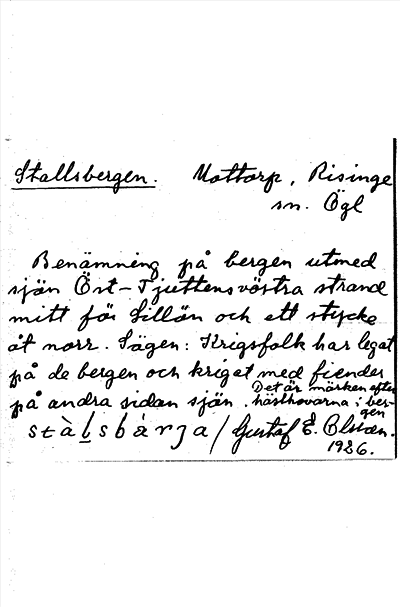 Stallsbergen. Mottorp, Risinge
sn. Ögl
Benämning på bergen utmed
sjön Öst-Tjuttens västra strand
mitt för Lillön och ett stycke
åt norr. Sägen: Krigsfolk har legat
på de bergen och kriget med fiender
på andra sidan sjön. Det är märken efter
hästhovarna i ber-
gen
stàlsbárja / Gustaf E.
1926.